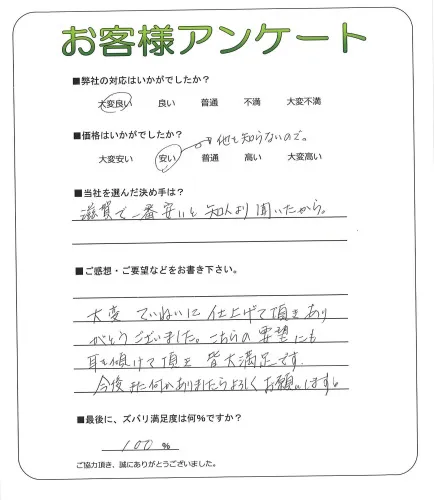 お客様アンケート
■弊社の対応はいかがでしたか？
大変良い 良い 普通 不満 大変不満
■価格はいかがでしたか？
他を知らないので。
大変安い 安い 普通 高い 大変高い
■当社を選んだ決め手は？
滋賀で一番安いと知人より聞いたから。
■ご感想・ご要望などをお書き下さい。
大変ていねいに仕上げて頂きあり
がとうございました。こちらの要望にも
耳を傾けて頂き皆大満足です。
今後また何かありましたらよろしくお願いします。
■最後に、ズバリ満足度は何％ですか？
100 ％
ご協力頂き、誠にありがとうございました。